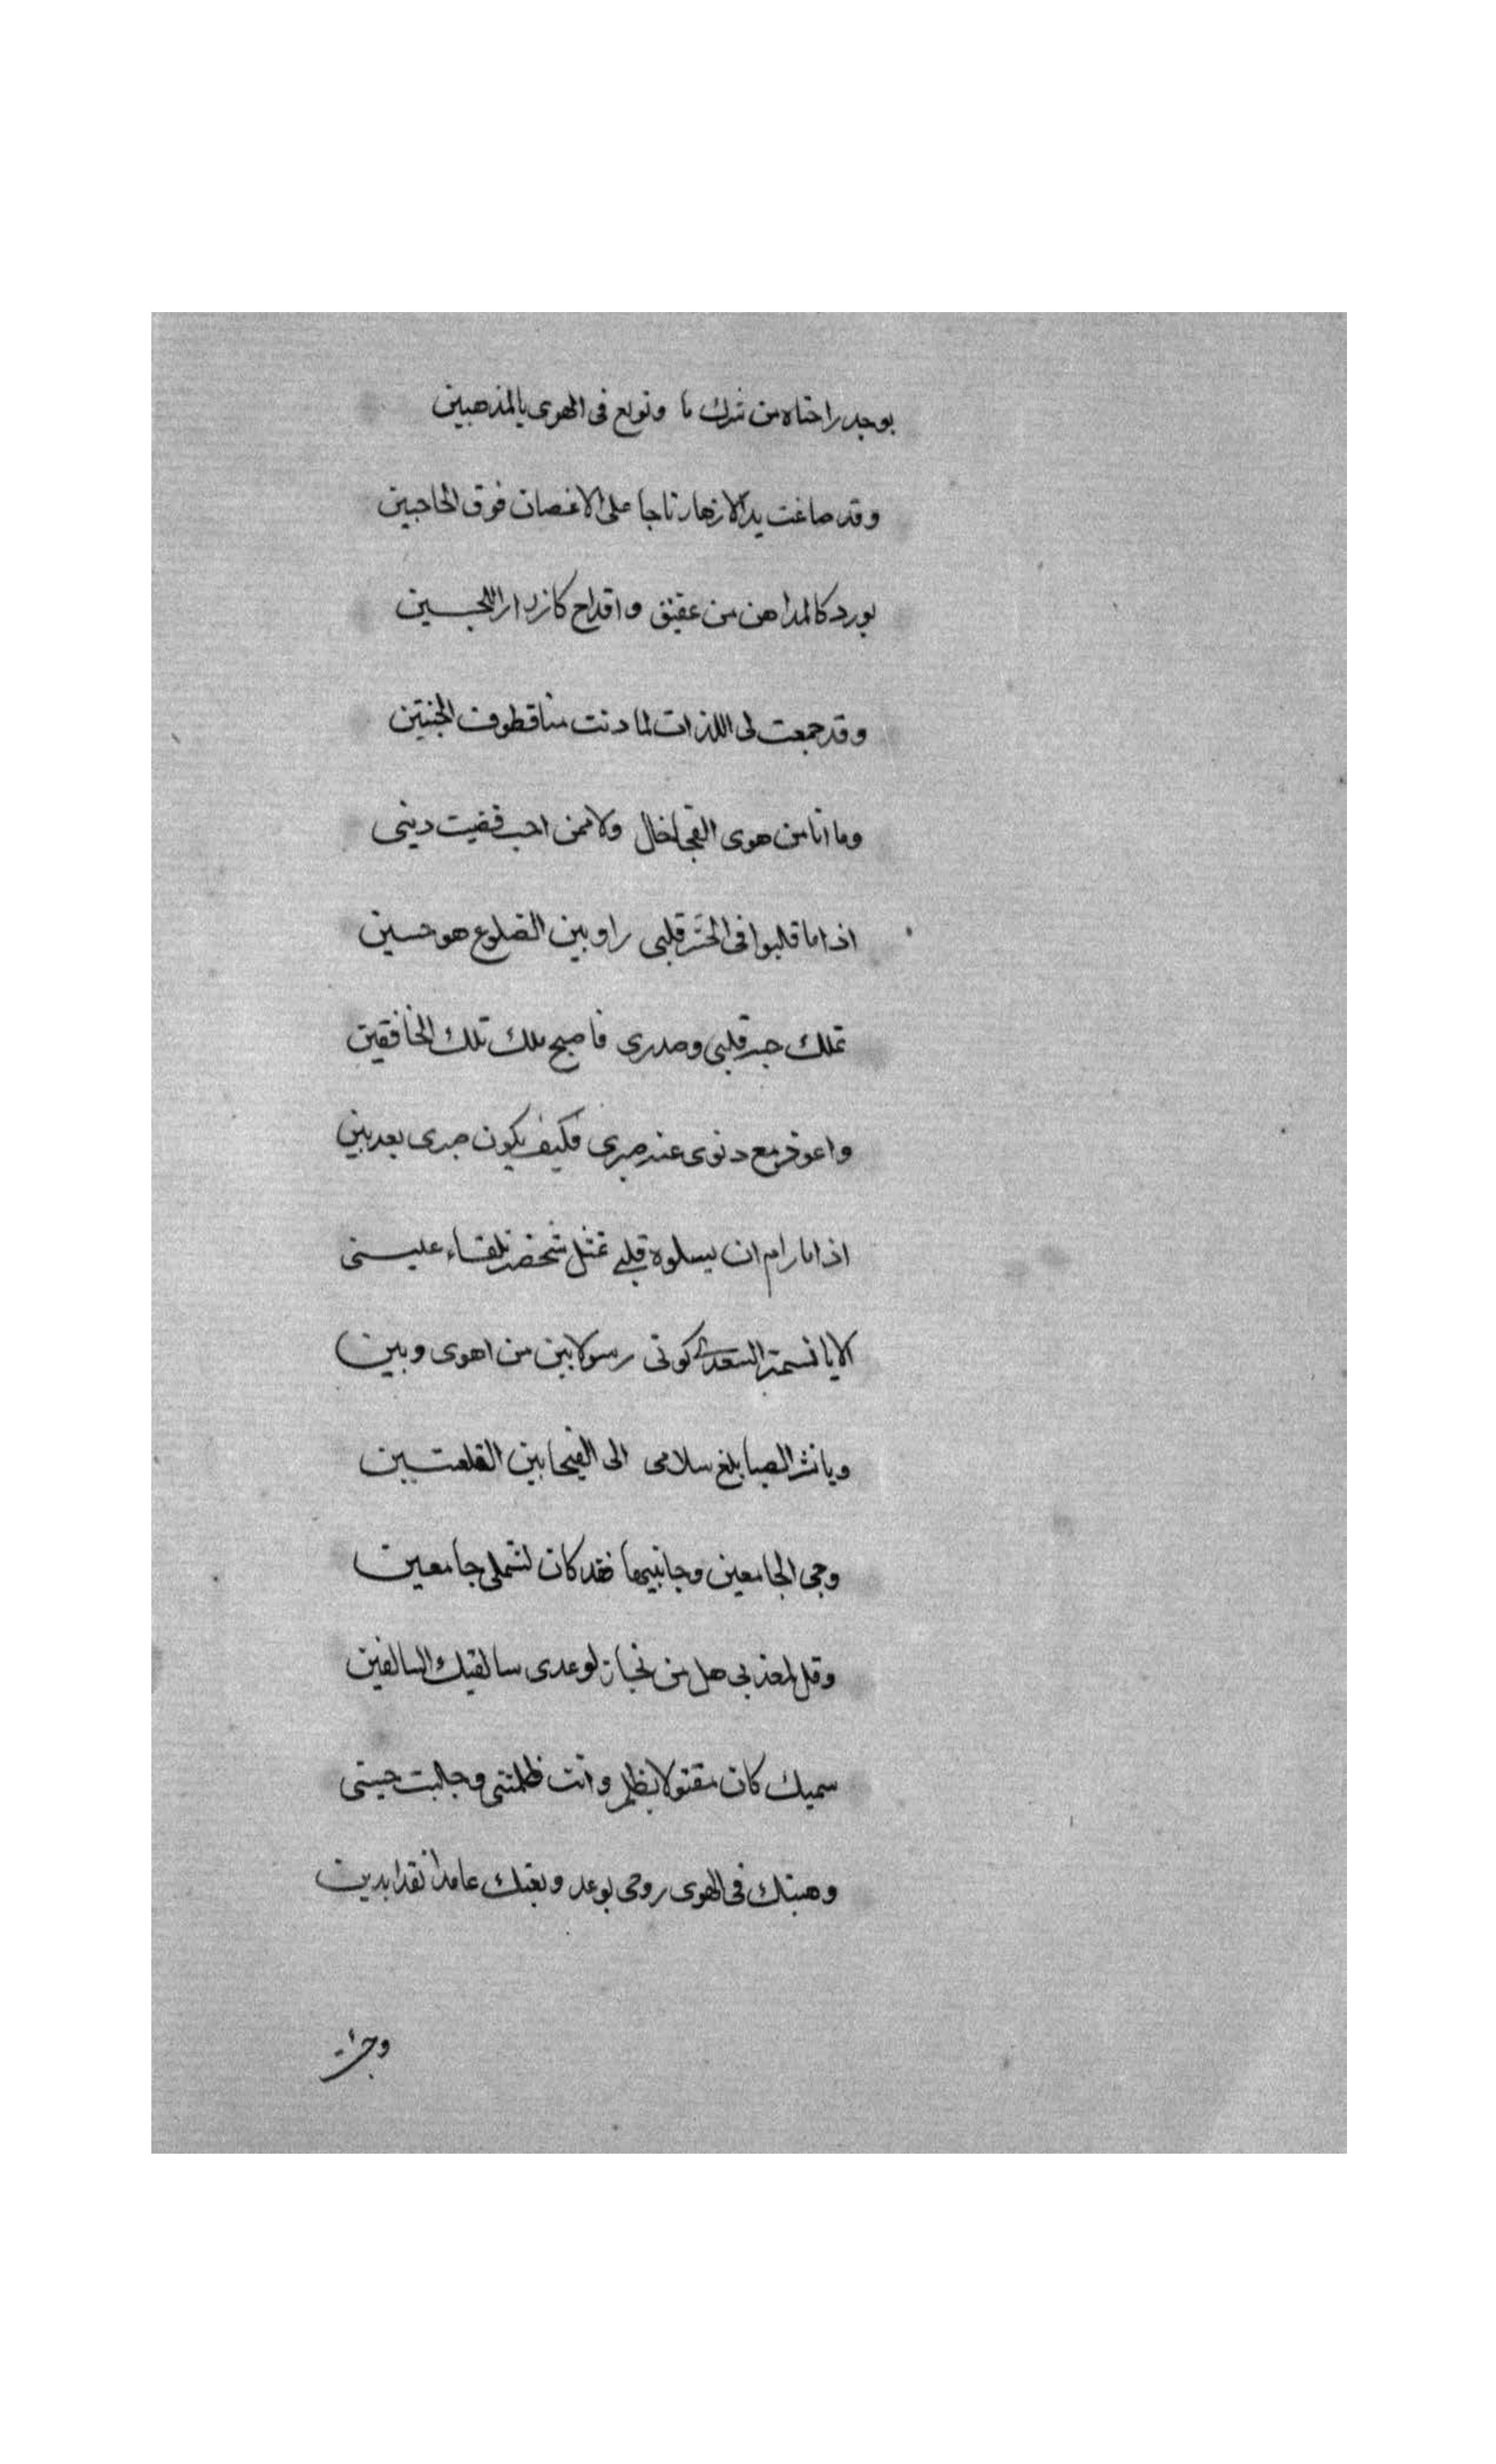 بوجد راحتاه من شرك ما ونولع فى الهوى بالمذهبين
وقد صاغت يد الازهار تاجا على الاغصان فوق الحاجبين
بورد كالمداهن من عقيق واقداح كازرار اللجــين
وقد جمعت لى اللذات لما دنت منا قطوف الجنتين
وما انا من هوى الفيحا خال ولا ممن احب قضيت دينى
اذا ما قلبوا فى الحشر قلبى راو بين الضلوع هو حسين
تملك حبه قلبى وصدرى فاصبح ملك تلك الخافقين
واعوز مع دنوى عنه صبرى فكيف يكون صبرى بعد بين
اذا ما رام ان يسلوه قلبى تمثل شخصه تلقاء عيــنى
الا يا نسمة السعدى كونى رسولا بين من اهوى وبين
ويا نشر الصبا بلغ سلامى الى الفيحا بين القلعتــين
وحى الجامعين وجانبيها فقد كان لشملى جامعين
وقل لمعذبى هل من نجاز لوعدى سالفيك السالفين
سميك كان مقتولا بظلم وانت ظلمتنى وجلبت حينى
وهبتك فى الهوى روحى بوعد وبعتك عامدا نقدا بدين